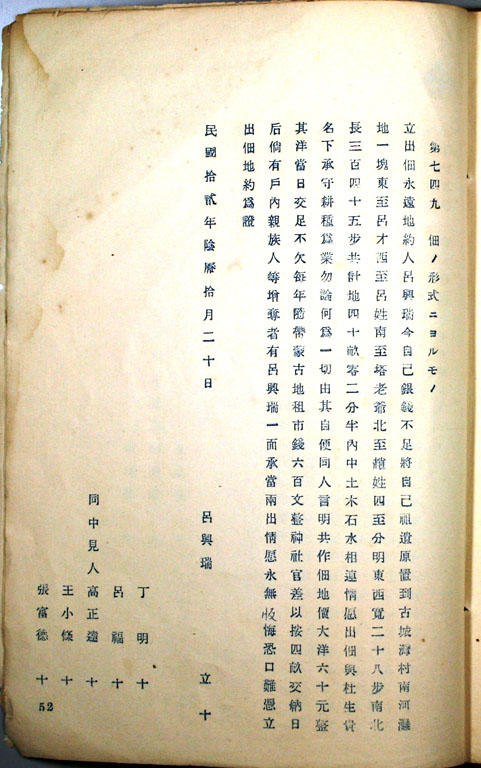 第七四九　佃ノ形式ニヨルモノ
立出佃永遠地約人呂興瑞今自己銀錢不足將自己祖遺原置到古城灣村南河灘
地一塊東至呂才西至呂姓南至塔老爺北至趙姓四至分明東西寬二十八步南北
長三百四十五步共計地四十畝零二分半內中土木石水相連情愿出佃與杜生貴
名下承守耕種爲業勿論何爲一切由其自便同人言明共作佃地價大洋六十元整
其洋當日交足不欠每年隨帶蒙古地租市錢六百文整神社官差以按四畝交納日
后倘有戶內親族人等增奪者有呂興瑞一面承當兩出情愿永無收悔恐口難憑立
出佃地約爲證
民國拾貳年陰曆拾月二十日
呂興瑞　立十
丁明　十
呂福　十
同中見人高正遠　十
王小條　十
張富德　十
52